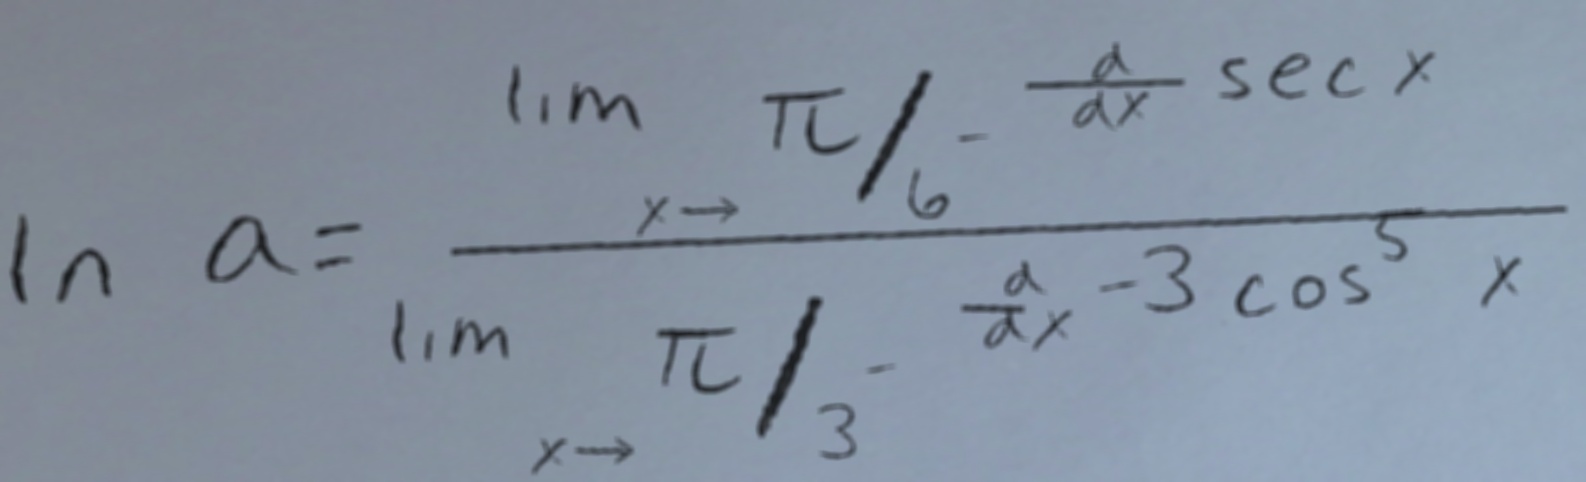 ln a = \frac{\lim_{x \to \pi/6^-} \frac{d}{dx} \sec x}{\lim_{x \to \pi/3^-} \frac{d}{dx} -3 \cos^5 x}